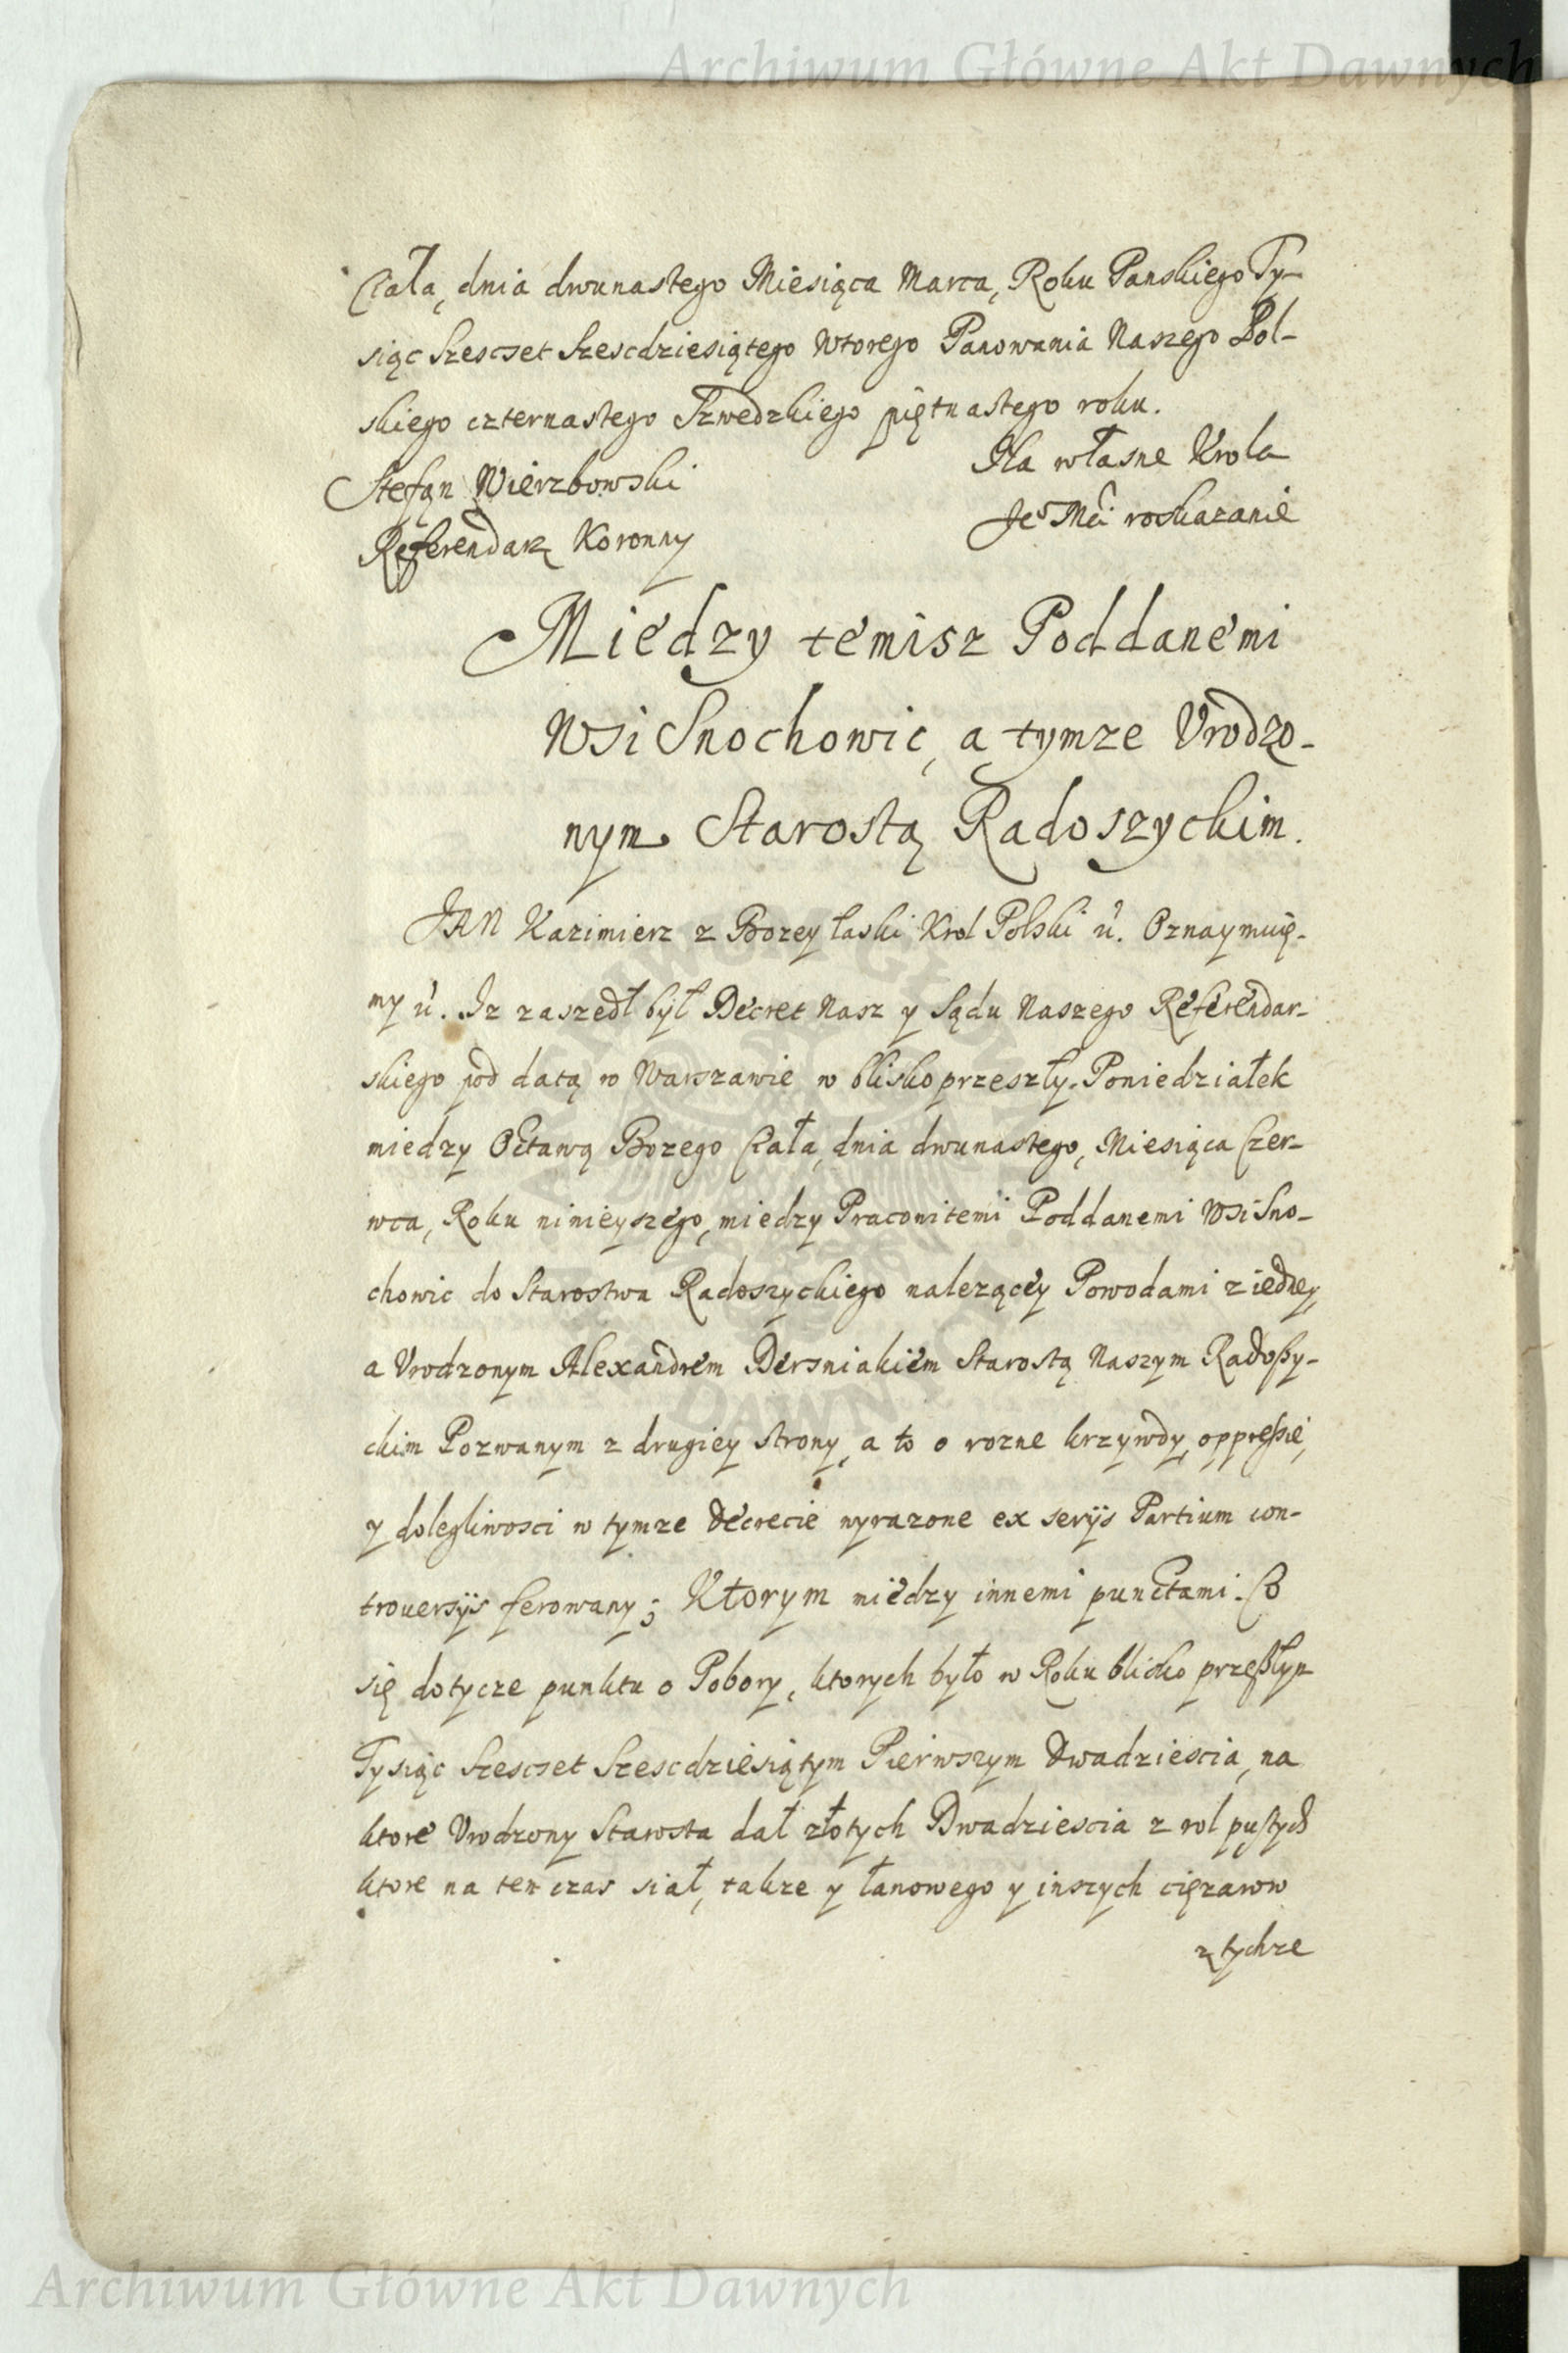 Archiwum Główne Akt Dawnych
Ciała, dnia dwunastego Miesiąca Marca, Roku Panskiego Ty-
siąc Szescset Szescdziesiątego Wtorego Panowania Naszego Pol-
skiego czternastego Szwedzkiego piętnastego roku.
Stefąn Wierzbowski
Na własne Krola
Referendarz Koronny
Je° Mći roskazanie
Miedzy temisz Poddanemi
Wsi Snochowic, a tymze Vrodzo-
nym Starostą Radoszyckim.
JAN Kazimierz z Bozey łaski Krol Polski ú. Oznaymuię-
my ú. Jz zaszedł był Decret Nasz y Sądu Naszego Referendar-
skiego pod datą w Warszawie w blisko przeszły Poniedziałek
miedzy Octawą Bozego Ciała, dnia dwunastego, Miesiąca Czer-
wca, Roku ninieyszego, miedzy Pracowitemi Poddanemi Wsi Sno-
chowic do Starostwa Radoszyckiego nalezącey Powodami z iedney
a Vrodzonym Alexandrem Dersniakiem Starostą Naszym Radoßy-
ckim Pozwanym z drugiey strony, a to o rozne krzywdy, oppreßie,
y dolegliwosci w tymze Decrecie wyrazone ex serijs Partium con-
trouersijs ferowany; Ktorym miedzy innemi punctami. Co
się dotycze punktu o Pobory, ktorych było w Roku blisko przeßłym
Tysiąc Szescset Szescdziesiątym Pierwszym Dwadziescia, na
ktore Vrodzony Starosta dał złotych Dwadziescia z rol pustych
ktore na ten czas siał, takze y łanowego y inszych cięzarow
z tychze
Archiwum Główne Akt Dawnych